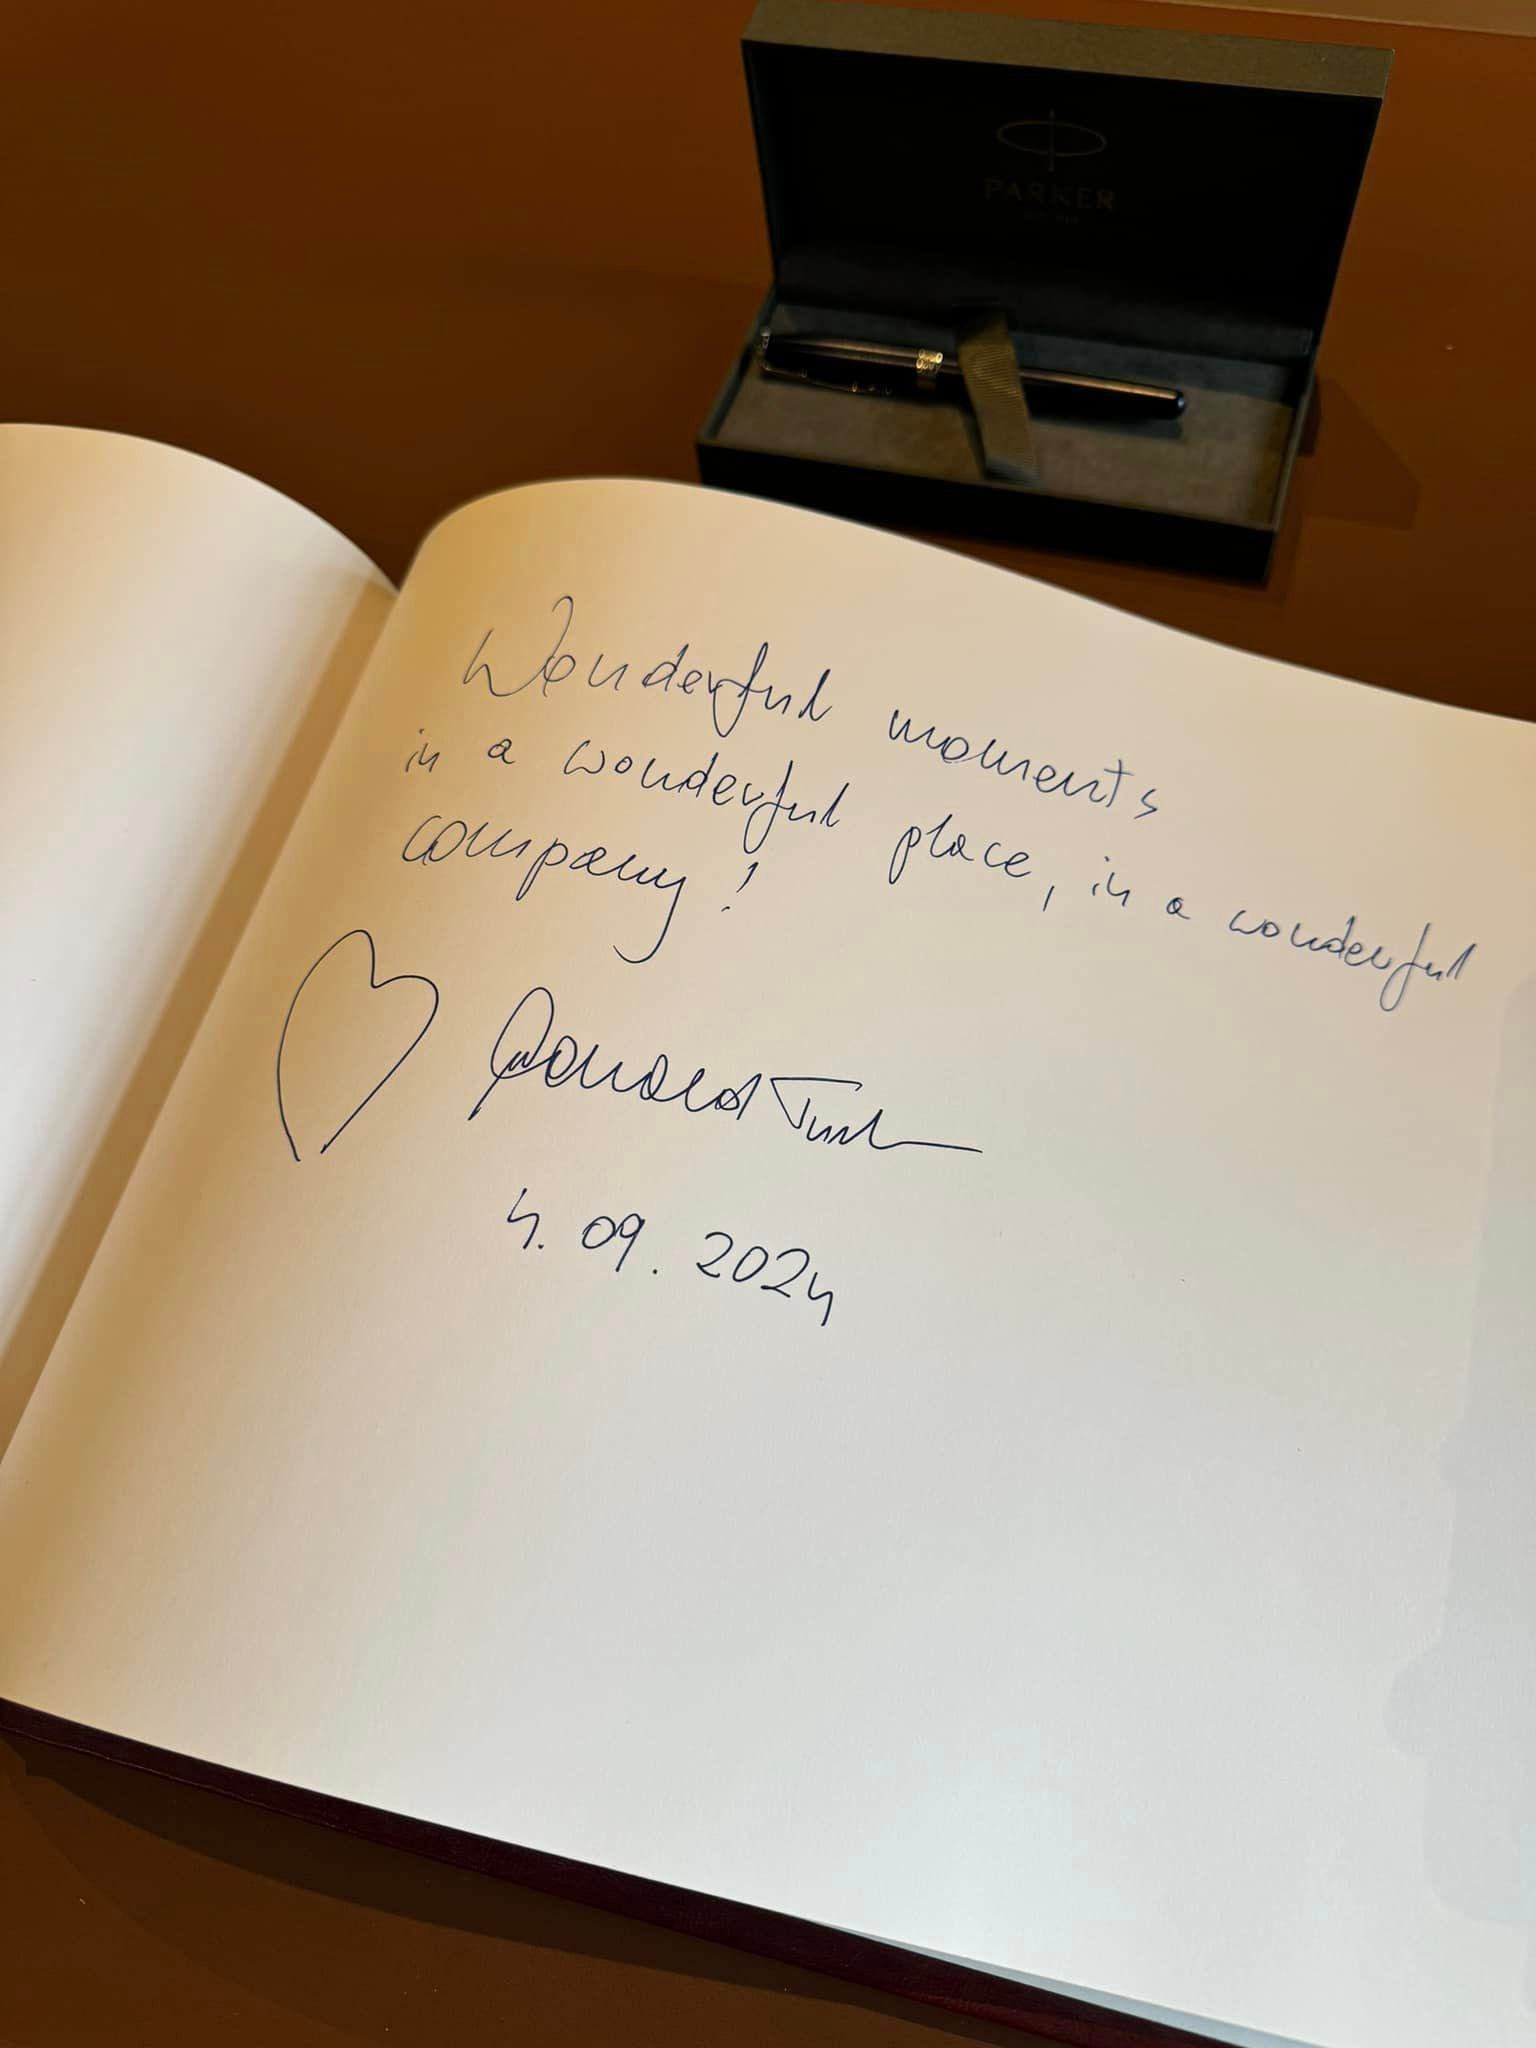 PARKER
Wonderful moments
in a wonderful place, in a wonderful
company!
Donald Tusk
4.09.2024